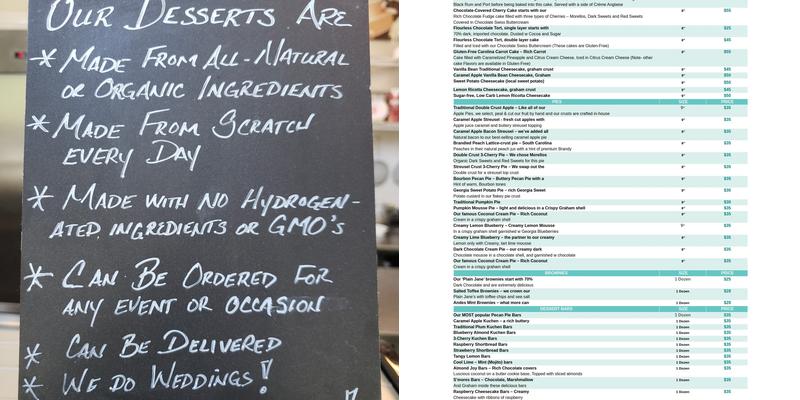 Our Desserts Are
* Made From All-Natural
or Organic Ingredients
* Made From Scratch
every Day
* Made with no Hydrogen-
ated ingredients or GMO's
* Can Be Ordered For
any event or occasion
* Can Be Delivered
* We do Weddings!
Black Rum and Port before being baked into this cake. Served with a side of Crème Anglaise
Chocolate-Covered Cherry Cake starts with our 8" $55
Rich Chocolate Fudge cake filled with three types of Cherries – Morellos, Dark Sweets and Red Sweets
Covered in Chocolate Swiss Buttercream
Flourless Chocolate Tort, single layer starts with $25
70% dark, imported chocolate. Dusted w Cocoa and Sugar
Flourless Chocolate Tort, double layer $45
Filled and Iced with our Chocolate Swiss Buttercream (These cakes are Gluten-Free)
Gluten-Free Carolina Carrot Cake – Rich Carrot $55
Cake filled with Caramelized Pineapple and Citrus Cream Cheese, Iced in Citrus Cream Cheese (Note- other
cake Flavors are Available in Gluten-Free)
Vanilla Bean Traditional Cheesecake, graham crust $45
Caramel Apple Vanilla Bean Cheesecake, Graham $50
Sweet Potato Cheesecake (local sweet potato) $50
Lemon Ricotta Cheesecake, graham crust $45
Sugar-free, Low Carb Lemon Ricotta Cheesecake $50
PIES SIZE PRICE
Traditional Double Crust Apple – Like all of our $35
Apple Pies, we select, peal & cut our fruit by hand and our crusts are crafted in-house
Caramel Apple Streusel - fresh cut apples with $35
Apple juice caramel and buttery streusel topping
Caramel Apple Bacon Streusel – we've added all $35
Natural bacon to our best-selling caramel apple pie
Brandied Peach Lattice-crust pie – South Carolina $35
Peaches in their natural peach jus with a hint of premium Brandy
Double Crust 3-Cherry Pie - We chose Morellos $35
Organic Dark Sweets and Red Sweets for this pie
Streusel Crust 3-Cherry Pie – We swap out the $35
Double crust for a streusel top crust
Bourbon Pecan Pie – Buttery Pecan Pie with a $35
Hint of warm, Bourbon tones
Georgia Sweet Potato Pie – rich Georgia Sweet $35
Potato custard in our flakey pie crust
Traditional Pumpkin Pie $35
Pumpkin Mousse Pie – light and delicious in a Crispy Graham shell $35
Our famous Coconut Cream Pie – Rich Coconut $35
Cream in a crispy graham shell
Creamy Lemon Blueberry – Creamy Lemon Mousse $35
In a crispy graham shell garnished w Georgia Blueberries
Creamy Lime Blueberry – the partner to our creamy $35
Lemon only with Creamy, tart lime mousse
Dark Chocolate Cream Pie – our creamy dark $35
Chocolate mousse in a chocolate shell, and garnished w chocolate
Our famous Coconut Cream Pie – Rich Coconut $35
Cream in a crispy graham shell
BROWNIES SIZE PRICE
Our 'Plain Jane' brownies start with 70% 1 Dozen $25
Dark Chocolate and are extremely delicious
Salted Toffee Brownies – we crown our 1 Dozen $28
Plain Jane's with toffee chips and sea salt
Andes Mint Brownies – what more can 1 Dozen $28
DESSERT BARS SIZE PRICE
Our MOST popular Pecan Pie Bars 1 Dozen $35
Caramel Apple Kuchen – a rich buttery 1 Dozen $35
Traditional Plum Kuchen Bars 1 Dozen $35
Blueberry Almond Kuchen Bars 1 Dozen $35
3-Cherry Kuchen Bars 1 Dozen $35
Raspberry Shortbread Bars 1 Dozen $35
Strawberry Shortbread Bars 1 Dozen $35
Tangy Lemon Bars 1 Dozen $35
Cool Lime – Mint (Mojito) bars 1 Dozen $35
Almond Joy Bars – Rich Chocolate covers 1 Dozen $35
Luscious coconut on a butter cookie base. Topped with sliced almonds
S'mores Bars – Chocolate, Marshmallow 1 Dozen $35
And Graham inside these delicious bars
Raspberry Cheesecake Bars – Creamy 1 Dozen $35
Cheesecake with ribbons of raspberry